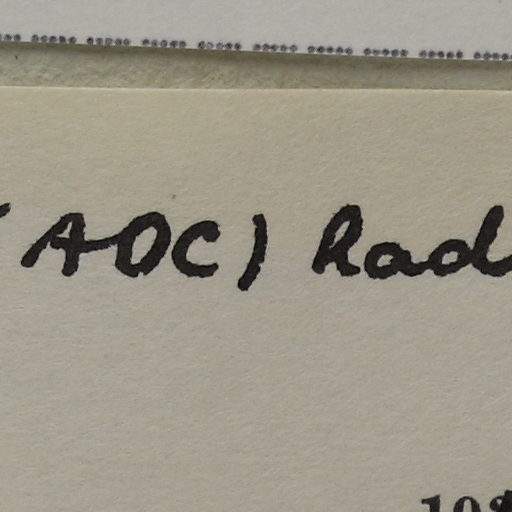 (ADC) Rad